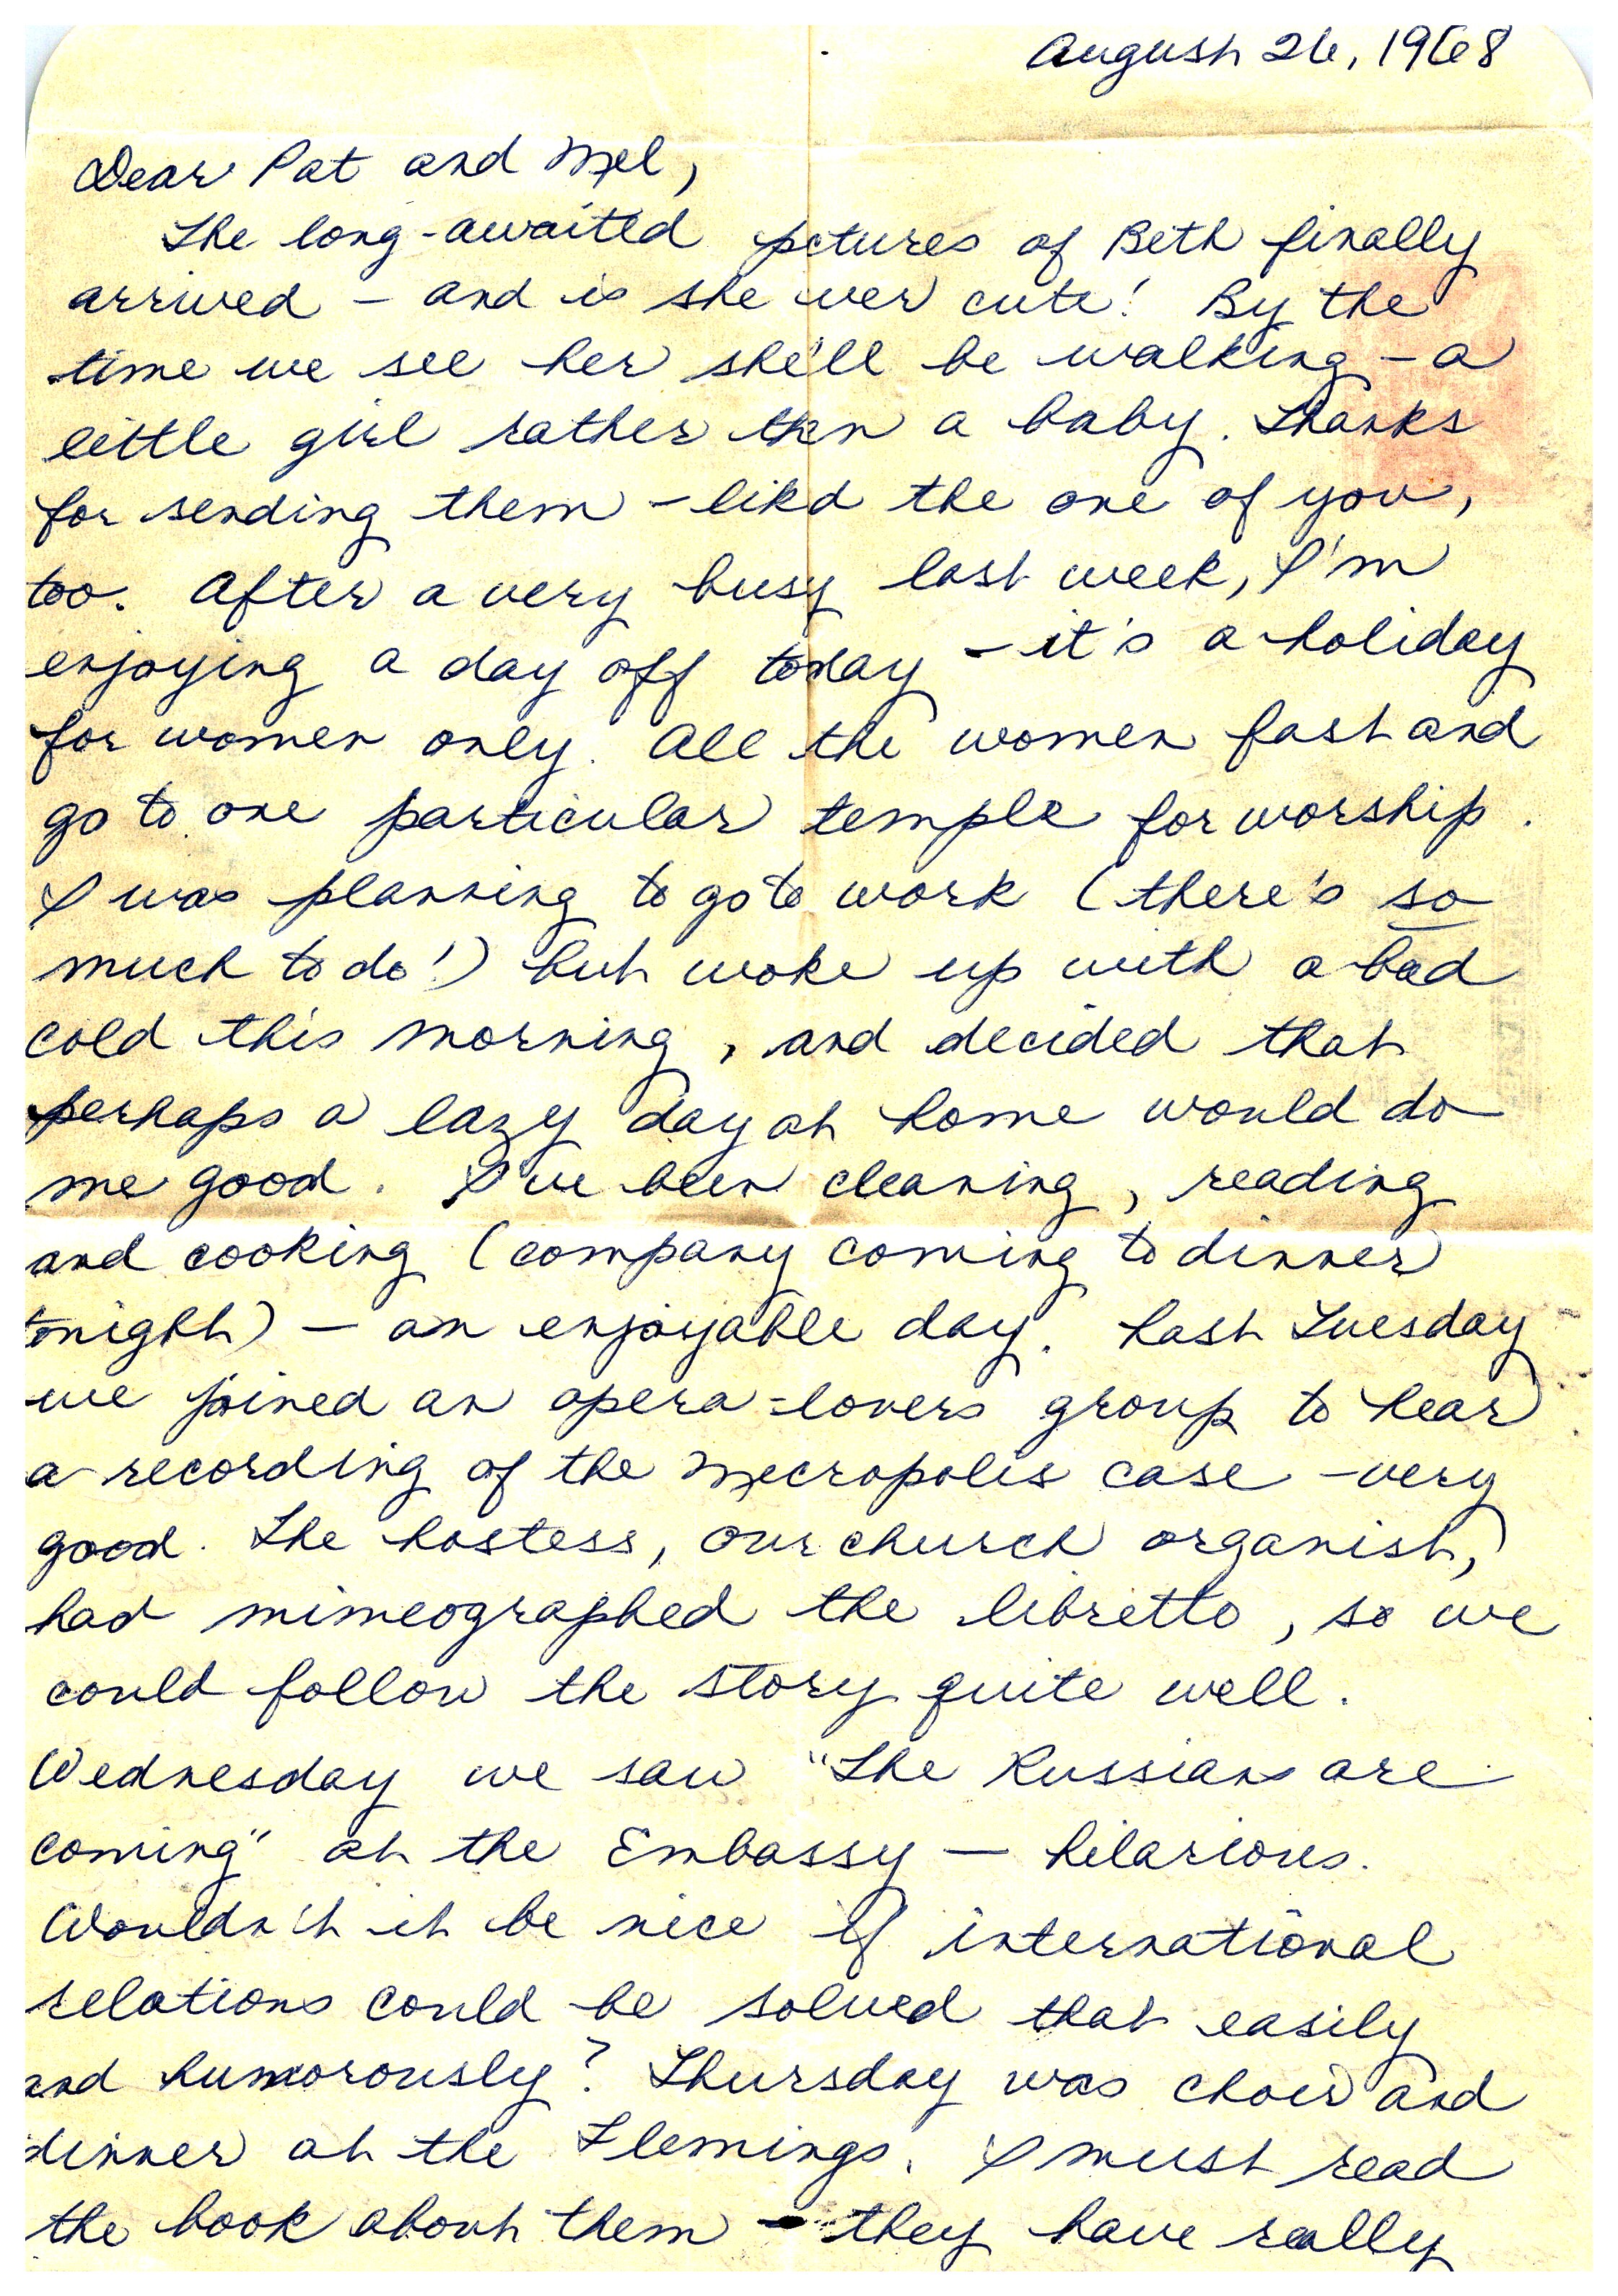 August 26, 1968
Dear Pat and Mel,
The long-awaited pctures of Beth finally
arrived – and is she ver cute! By the
time we see her she'll be walking – a
little girl rather then a baby. Thanks
for sending them – likd the one of you,
too. After a very busy last week, I'm
enjoying a day off today – it's a holiday
for women only. All the women fast and
go to one particular temple for worship.
I was planning to go to work (there's so
much to do!) but woke up with a bad
cold this morning, and decided that
perhaps a lazy day at home would do
me good. I've been cleaning, reading
and cooking (company coming to dinner
tonight) – an enjoyable day. Last Tuesday
we joined an opera-lovers group to hear
a recording of the Mecropolis case – very
good. The hostess, our church organist,
had mimeographed the libretto, so we
could follow the story quite well.
Wednesday we saw "The Russians are
coming" at the Embassy – hilarious.
Wouldn't it be nice if international
relations could be solved that easily
and humorously? Thursday was choir and
dinner at the Flemings. I must read
the book about them – they have really